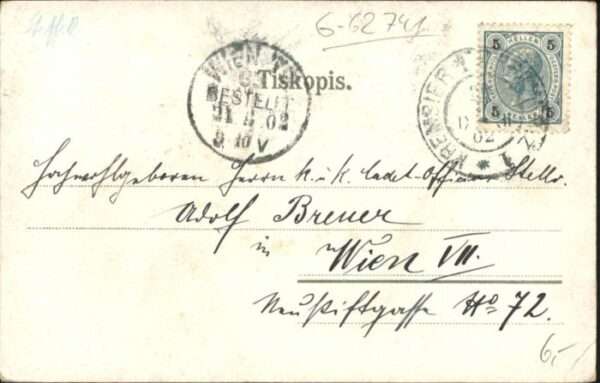 6-6274
5 HELLER 5
5 5
Tiskopis.
WIEN
BESTELLT
21 02
9 10 V
KREMSIER
02
Hochwohlgeboren Herrn k. u. k. Cadet-Offizier Stellv.
Adolf Breuer
in
Wien VII.
Neustiftgasse No 72.
6,-